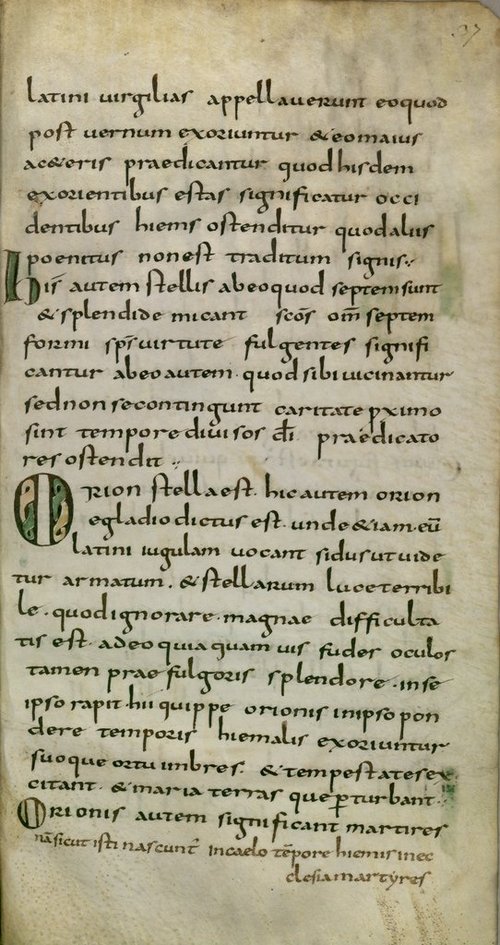 37
latini uirgilias appellauerunt eoquod
post uernum exoriuntur & eomaius
ac&eris praedicantur quod hisdem
exorientibus estas significatur occi
dentibus hiems ostenditur quod aliis
poenitus non est traditum signis
his autem stellis abeoquod septem sunt
& splendide micant scōs om̅ septem
formi sps̄ uirtute fulgentes signifi
cantur abeo autem quod sibi uicinantur
sed non se contingunt caritate pximo
sint tempore diuisos dī praedicato
res ostendit
Orion stella est. hic autem orion
egladio dictus est. unde & iam eū
latini iugulam uocant sidus ut uide
tur armatum. & stellarum luce terribi
le. quod ignorare magnae difficulta
tis est. adeo quia quam uis fudes oculos
tamen prae fulgoris splendore in se
ipso rapit. hii quippe orionis in ipso pon
dere temporis hiemalis exoriuntur
suoque ortu imbres. & tempestates ex
citant. & maria terras que pturbant
Orionis autem significant martires
nā sicut isti nascunt̄ in caelo tēpore hiemis in ec
clesia martyres